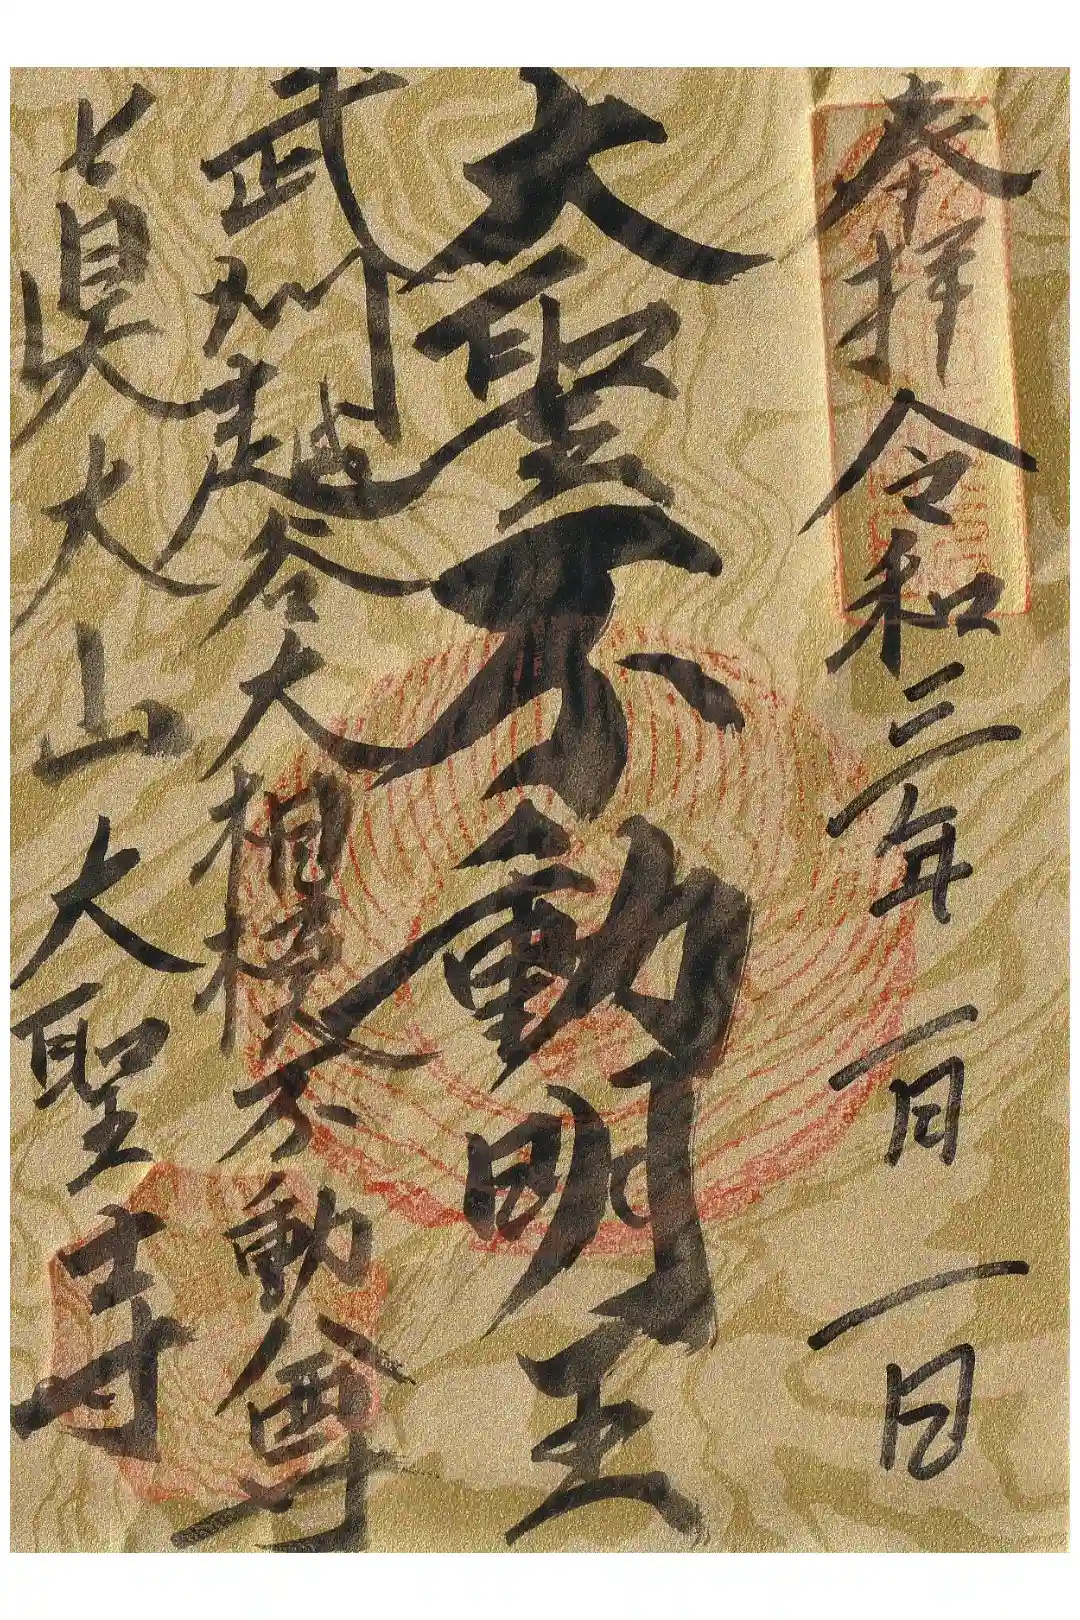 奉拝 令和三年 一月 一日
大聖不動明王
武州越谷大相模不動尊
真大山 大聖寺